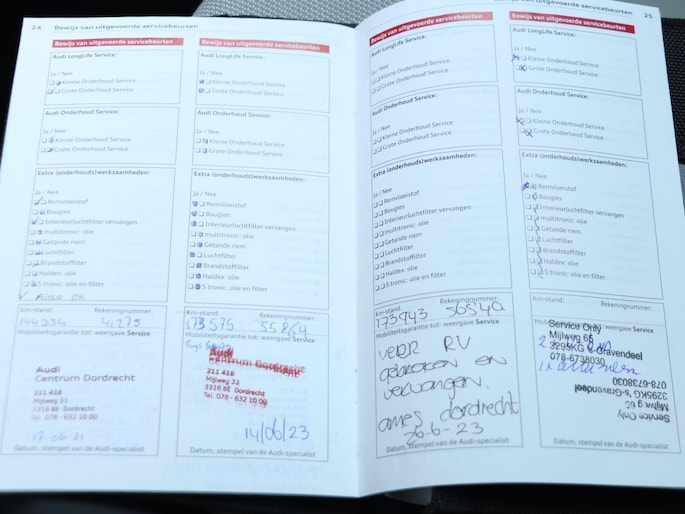 24 Bewijs van uitgevoerde servicebeurten
Bewijs van uitgevoerde servicebeurten
Audi LongLife Service:
Ja / Nee
Kleine Onderhoud Service
Grote Onderhoud Service
Audi Onderhoud Service:
Ja / Nee
Kleine Onderhoud Service
Grote Onderhoud Service
Extra (onderhouds)werkzaamheden:
Ja / Nee
Remvloeistof
Bougies
Interieurluchtfilter vervangen
multitronic: olie
Getande riem
Luchtfilter
Brandstoffilter
Haldex: olie
S tronic: olie en filter
Km-stand: Rekeningnummer:
41275
Mobiliteitsgarantie tot: weergave Service
Audi
Centrum Dordrecht
211 418
Mijlweg 33
3316 BE Dordrecht
tel. 078 - 632 10 00
17-06-21
Datum, stempel van de Audi-specialist
Bewijs van uitgevoerde servicebeurten
Audi LongLife Service:
Ja / Nee
Kleine Onderhoud Service
Grote Onderhoud Service
Audi Onderhoud Service:
Ja / Nee
Kleine Onderhoud Service
Grote Onderhoud Service
Extra (onderhouds)werkzaamheden:
Ja / Nee
Remvloeistof
Bougies
Interieurluchtfilter vervangen
multitronic: olie
Getande riem
Luchtfilter
Brandstoffilter
Haldex: olie
S tronic: olie en filter
Km-stand: Rekeningnummer:
173575 55864
Mobiliteitsgarantie tot: weergave Service
Audi
Centrum Dordrecht
211 418
Mijlweg 33
3316 BE Dordrecht
Tel. 078 - 632 10 00
14/06/23
Datum, stempel van de Audi-specialist
Bewijs van uitgevoerde servicebeurten 25
Bewijs van uitgevoerde servicebeurten
Audi LongLife Service:
Ja / Nee
Kleine Onderhoud Service
Grote Onderhoud Service
Audi Onderhoud Service:
Ja / Nee
Kleine Onderhoud Service
Grote Onderhoud Service
Extra (onderhouds)werkzaamheden:
Ja / Nee
Remvloeistof
Bougies
Interieurluchtfilter vervangen
multitronic: olie
Getande riem
Luchtfilter
Brandstoffilter
Haldex: olie
S tronic: olie en filter
Km-stand: Rekeningnummer:
173943 56540
Mobiliteitsgarantie tot: weergave Service
veer RV
gebroken en
vervangen.
ames dordrecht
26-6-23
Datum, stempel van de Audi-specialist
Bewijs van uitgevoerde servicebeurten
Audi LongLife Service:
Ja / Nee
Kleine Onderhoud Service
Grote Onderhoud Service
Audi Onderhoud Service:
Ja / Nee
Kleine Onderhoud Service
Grote Onderhoud Service
Extra (onderhouds)werkzaamheden:
Ja / Nee
Remvloeistof
Bougies
Interieurluchtfilter vervangen
multitronic: olie
Getande riem
Luchtfilter
Brandstoffilter
Haldex: olie
S tronic: olie en filter
Km-stand: Rekeningnummer:
Mobiliteitsgarantie tot: weergave Service
Service Only
078-6738030
078-6738030
3295KG 's-Gravendeel
Service Only
Datum, stempel van de Audi-specialist